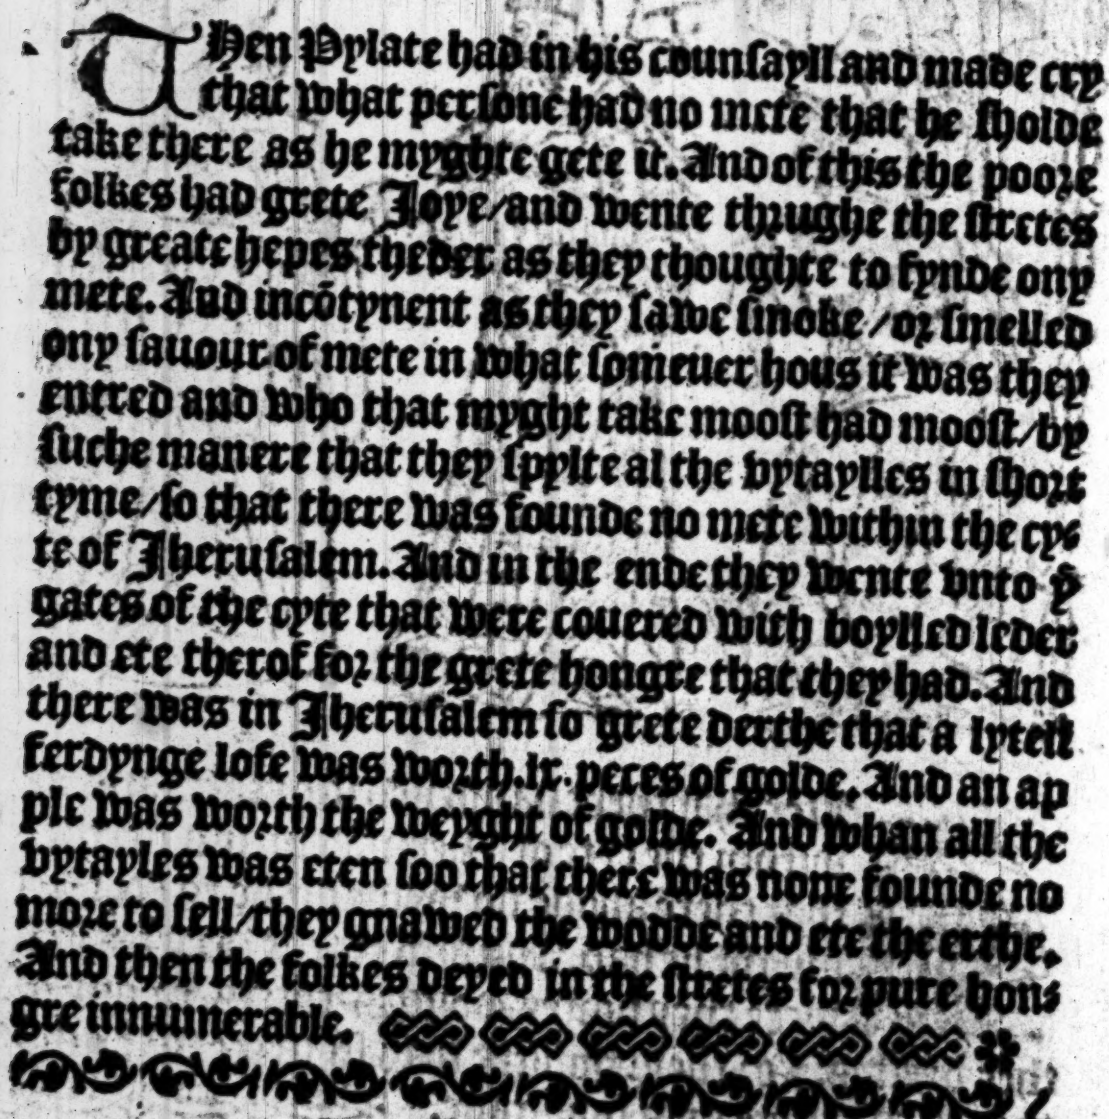 THen Pylate had in his counſayll and made cry
that what perſone had no mete that he ſholde
take there as he myghte gete it. And of this the poore
folkes had grete Joye/and wente thrughe the ſtretes
by greate hepes theder as they thoughte to fynde ony
mete. And incõtynent as they ſawe ſmoke/or ſmelled
ony ſauour of mete in what ſomeuer hous it was they
entred and who that myght take mooſt had mooſt/by
ſuche manere that they ſpylte al the vytaylles in ſhort
tyme/ſo that there was founde no mete within the cy⸗
te of Jheruſalem. And in the ende they wente vnto yͤ
gates of the cyte that were couered with boylled leder
and ete therof for the grete hongre that they had. And
there was in Jheruſalem ſo grete derthe that a lytell
ferdynge lofe was worth .lx. peces of golde. And an ap
ple was worth the weyght of golde. And whan all the
vytayles was eten ſoo that there was none founde no
more to ſell/they gnawed the wodde and ete the erthe.
And then the folkes deyed in the ſtretes for pure hon⸗
gre innumerable.